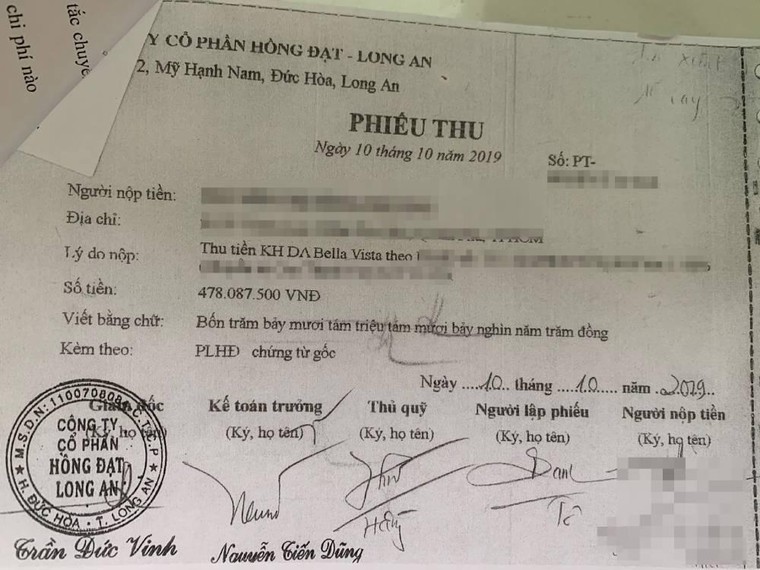 tắc chuyể
chi phí nào
Y CỔ PHẦN HỒNG ĐẠT - LONG AN
2, Mỹ Hạnh Nam, Đức Hòa, Long An
PHIẾU THU
Ngày 10 tháng 10 năm 2019
Số: PT-
Người nộp tiền:
Địa chỉ:
Lý do nộp: Thu tiền KH DA Bella Vista theo
Số tiền: 478.087.500 VNĐ
Viết bằng chữ: Bốn trăm bảy mươi tám triệu tám mươi bảy nghìn năm trăm đồng
Kèm theo: PLHĐ chứng từ gốc
Ngày .....10... tháng .....10.... năm .2019..
Giám đốc Kế toán trưởng Thủ quỹ Người lập phiếu Người nộp tiền
(Ký, họ tên) (Ký, họ tên) (Ký, họ tên) (Ký, họ tên) (Ký, họ tên)
M.S.D.N: 1100708084 C.T.C.P
CÔNG TY
CỔ PHẦN
HỒNG ĐẠT
LONG AN
H. ĐỨC HÒA - T. LONG AN
Trần Đức Vinh Nguyễn Tiến Dũng